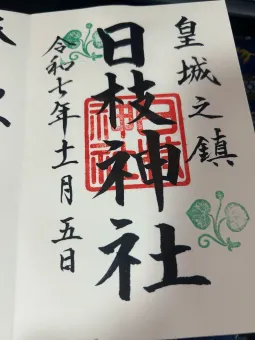 皇城之鎮
日枝神社
令和七年十一月五日